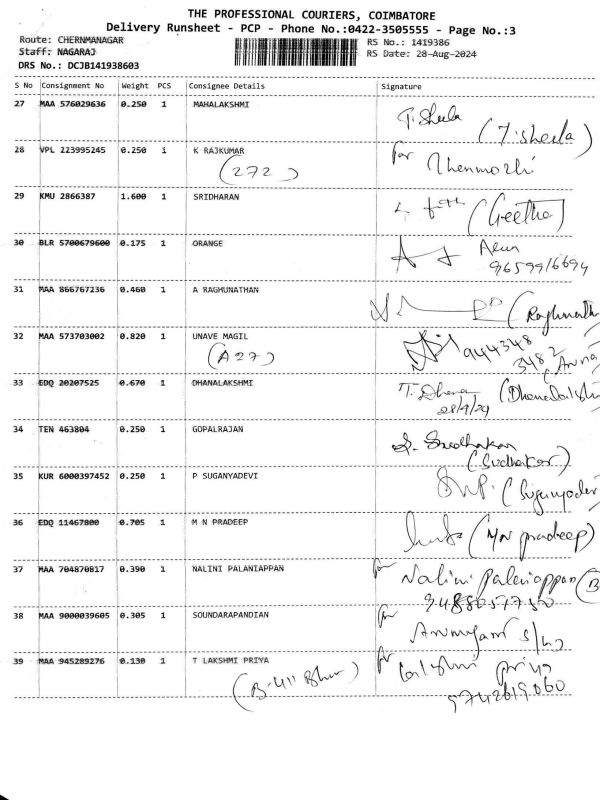 THE PROFESSIONAL COURIERS, COIMBATORE
Delivery Runsheet - PCP - Phone No.:0422-3505555 - Page No.:3
Route: CHERNMANAGAR
RS No.: 1419386
Staff: NAGARAJ
RS Date: 28-Aug-2024
DRS No.: DCJB141938603
S No Consignment No Weight PCS Consignee Details Signature
27 MAA 576029636 0.250 1 MAHALAKSHMI T. Sheela (T. sheela)
28 VPL 223995245 0.250 1 K RAJKUMAR for Thenmozhi
(272)
29 KMU 2866387 1.600 1 SRIDHARAN (Geetha)
30 BLR 5700679600 0.175 1 ORANGE Arun
9659916694
31 MAA 866767236 0.460 1 A RAGHUNATHAN (Raghunath
32 MAA 573703002 0.820 1 UNAVE MAGIL 944348
(A27) 3482
(Aruna
33 EDQ 20207525 0.670 1 DHANALAKSHMI T. Dhana (Dhanalakshmi
28/9/24
34 TEN 463804 0.250 1 GOPALRAJAN S. Sudhakar
(Sudhakar)
35 KUR 6000397452 0.250 1 P SUGANYADEVI (Suganyadevi
36 EDQ 11467800 0.705 1 M N PRADEEP (MN pradeep)
37 MAA 704870817 0.390 1 NALINI PALANIAPPAN for Nalini Palaniappan (B
9488051750
38 MAA 9000039605 0.305 1 SOUNDARAPANDIAN for Arumugam
39 MAA 945289276 0.130 1 T LAKSHMI PRIYA for Lakshmi priya
9742619060